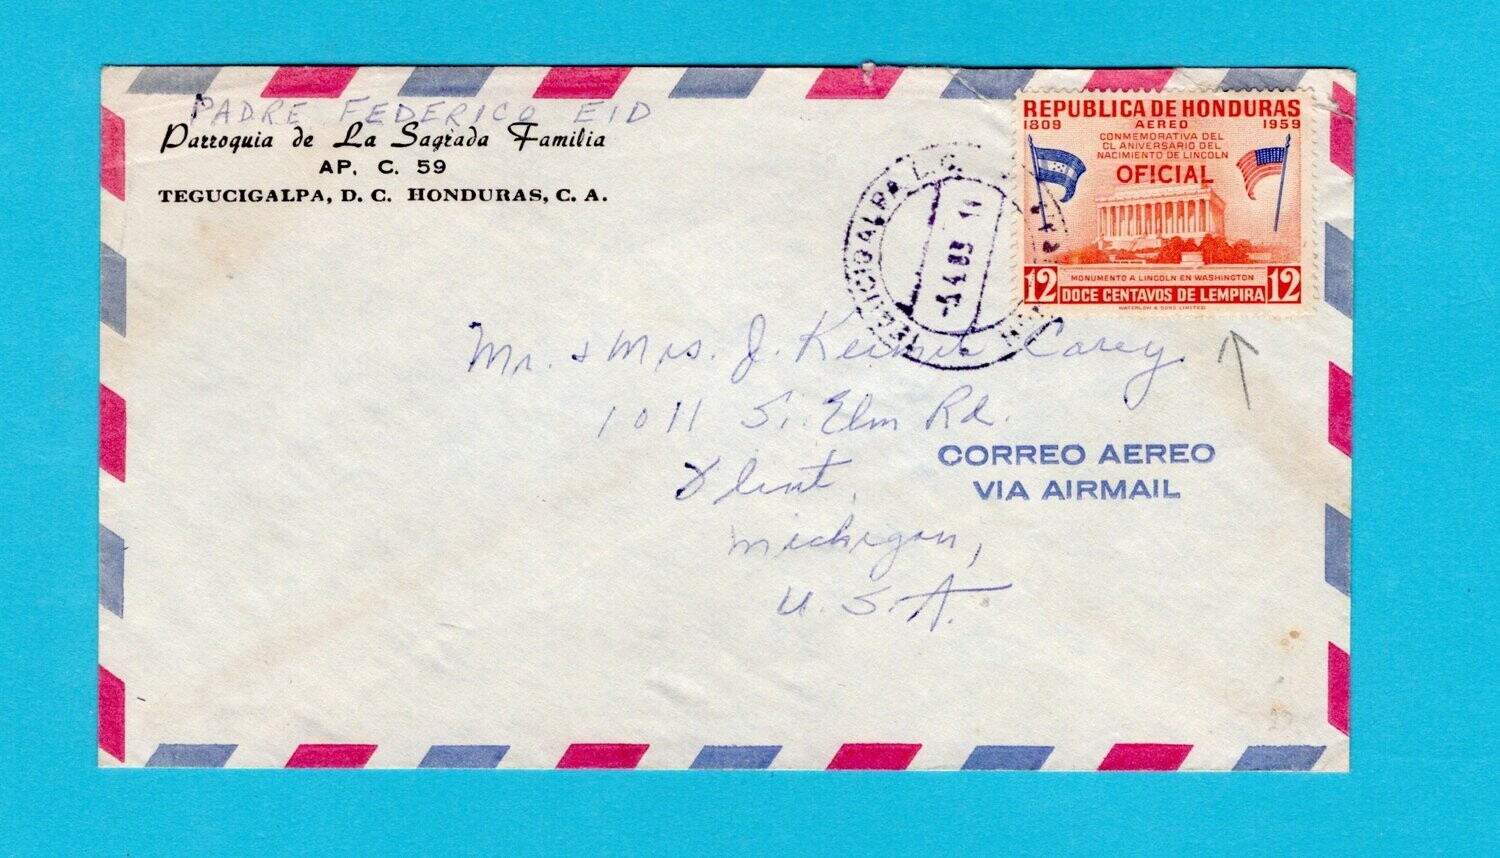 PADRE FEDERICO EID
Parroquia de La Sagrada Familia
AP. C. 59
TEGUCIGALPA, D. C. HONDURAS, C. A.
TEGUCIGALPA
REPUBLICA DE HONDURAS
1809 AEREO 1959
CONMEMORATIVA DEL
CL ANIVERSARIO DEL
NACIMIENTO DE LINCOLN
OFICIAL
MONUMENTO A LINCOLN EN WASHINGTON
12 DOCE CENTAVOS DE LEMPIRA 12
WATERLOW & SONS LIMITED
Mr. & Mrs. J. Carey
1011 S. Elm Rd.
Flint,
Michigan,
U. S. A.
CORREO AEREO
VIA AIRMAIL